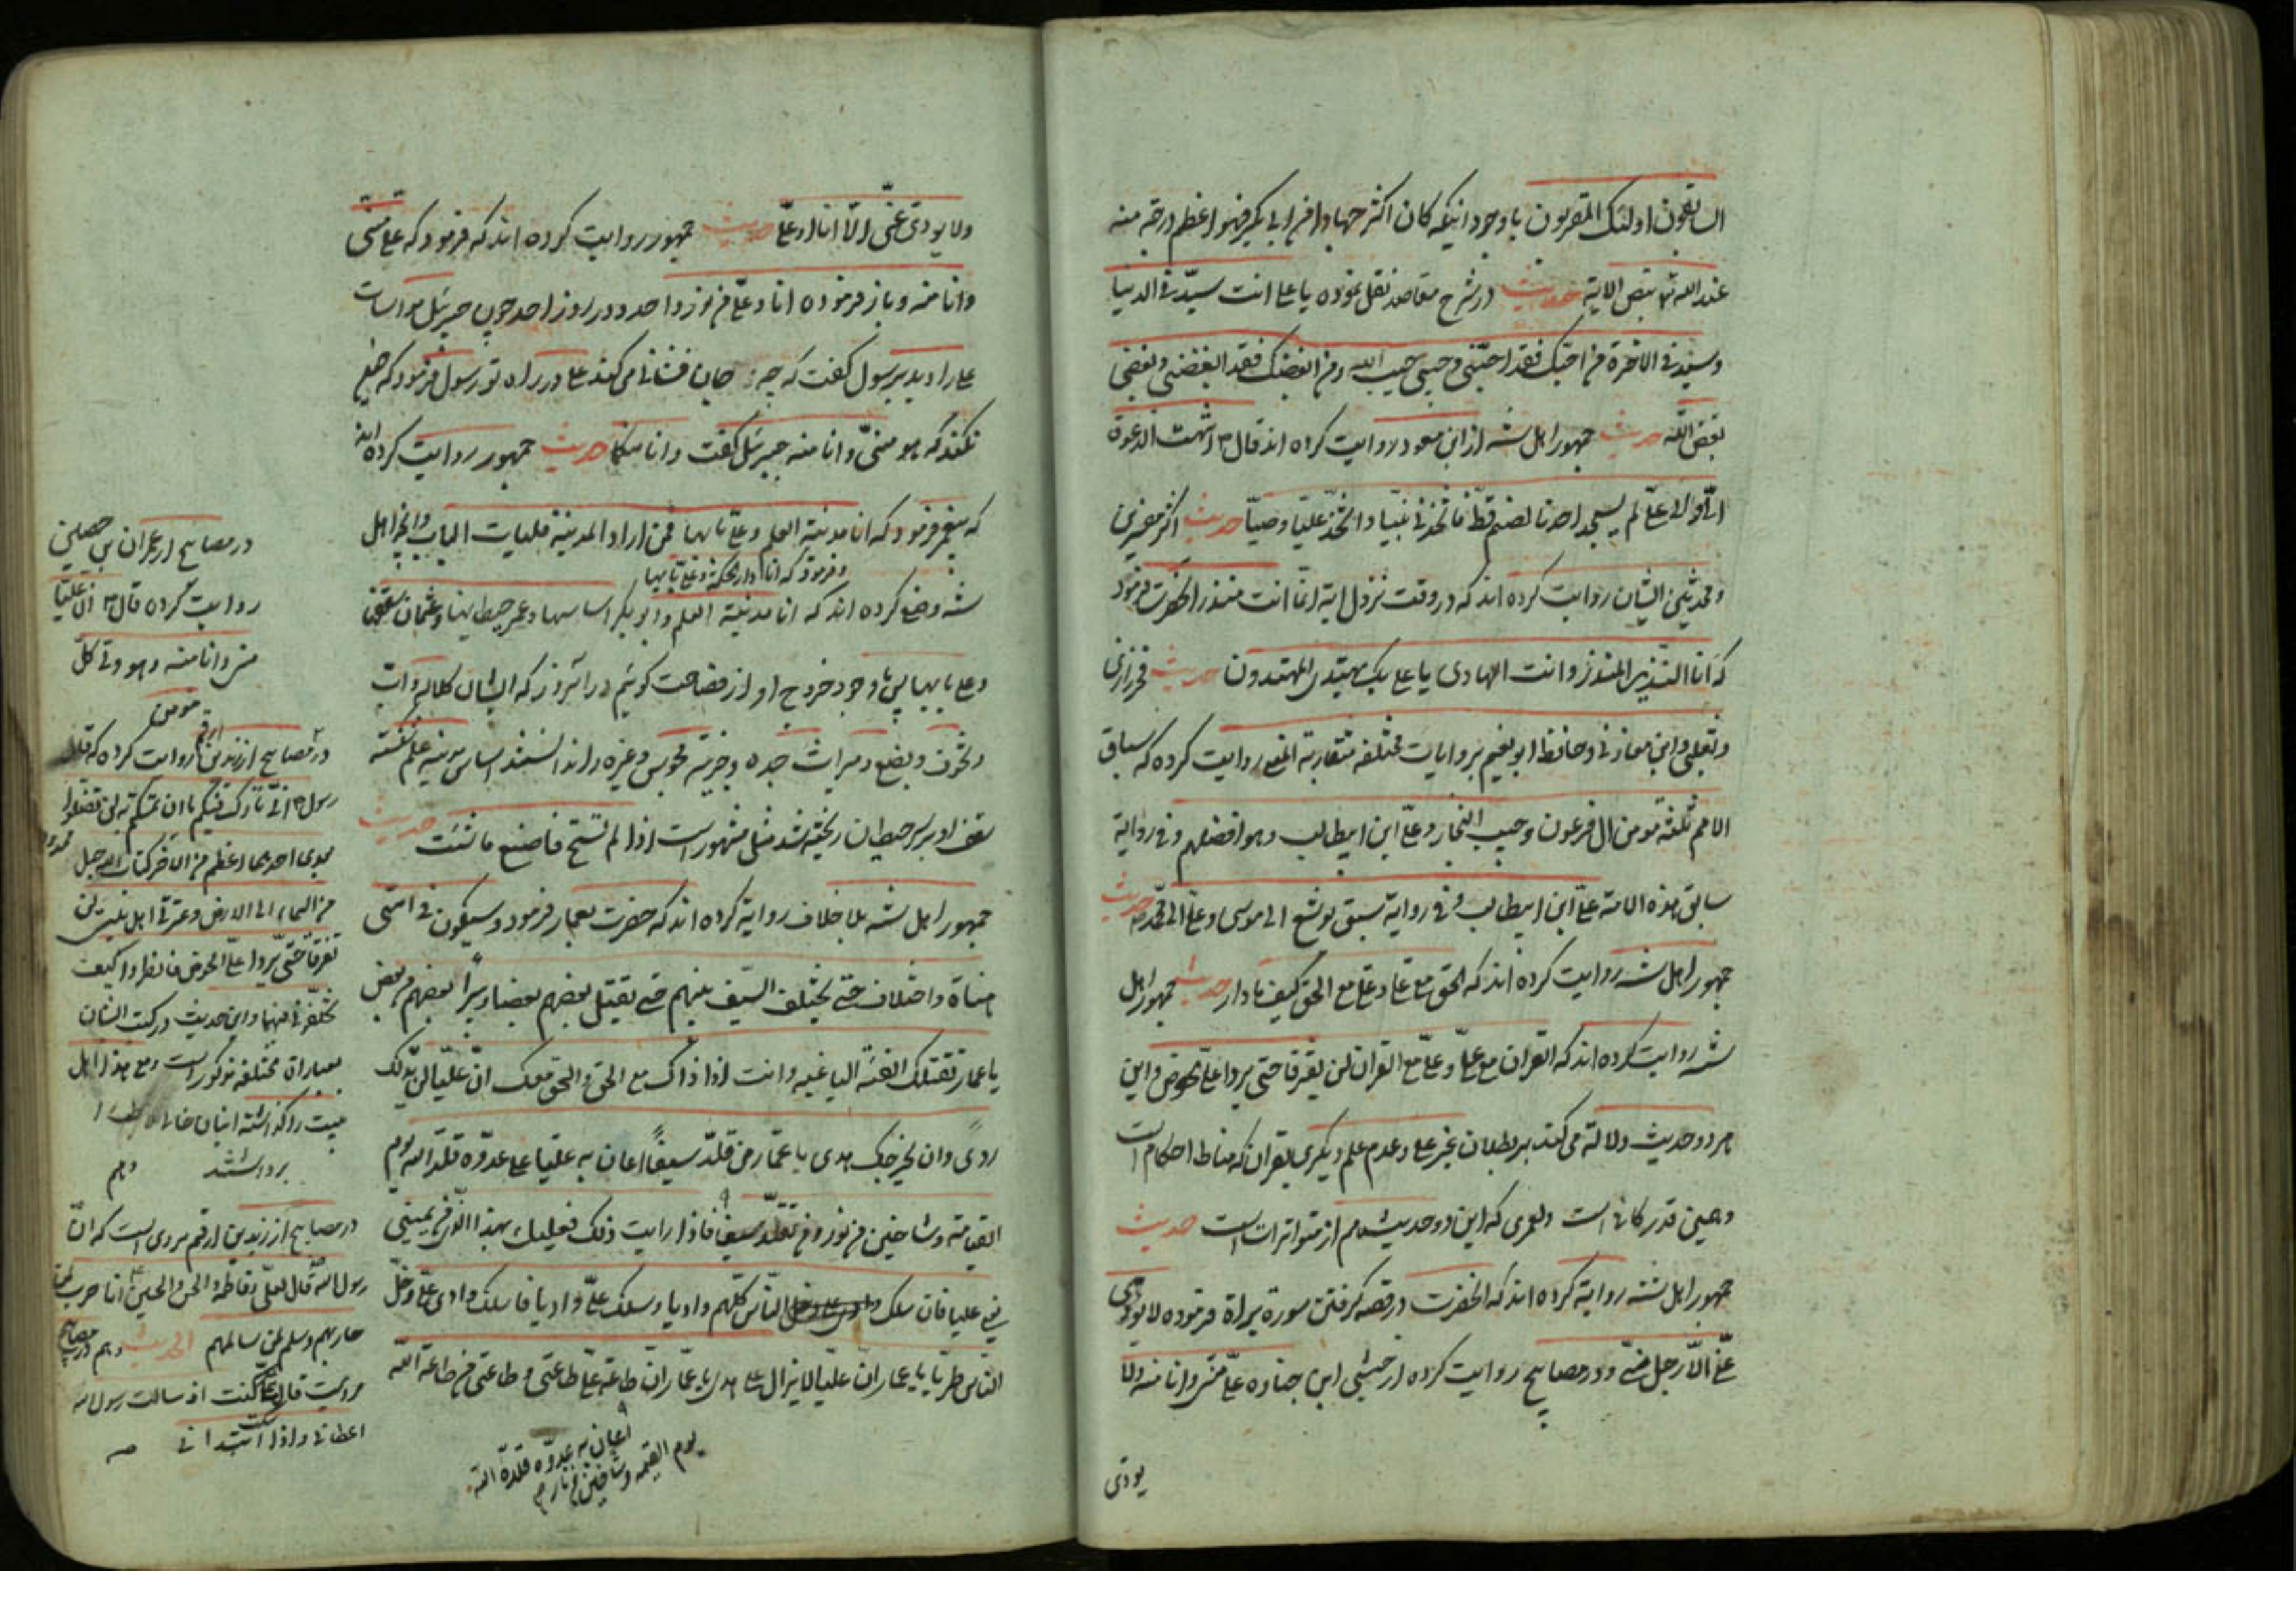 السابقون اولئک المقربون با وجود اینکه کان اکثر جهادا من ابی بکر فهو اعظم درجة منه
عند الله بنص الایة حدیث در شرح مقاصد نقل نموده یا علی انت سید فی الدنیا
وسید فی الاخرة من احبک فقد احبنی وحبیبی حبیب الله ومن ابغضک فقد ابغضنی وبغضی
بغض الله حدیث جمهور اهل سنه از ابن مسعود روایت کرده اند قال انتهت الدعوة
الی والی علی لم یسجد احدنا لصنم قط فاتخذنی نبیا واتخذ علیا وصیا حدیث اکثر مفسرین
ومحدثین ایشان روایت کرده اند که در وقت نزول ایة انما انت منذر انحضرت فرمود
که انا النذیر المنذر وانت الهادی یا علی بک یهتدی المهتدون حدیث فخر رازی
وثعلبی وابن مغازلی وحافظ ابو نعیم بروایات مختلفه متقاربة المعنی روایت کرده که سباق
الامم ثلثة مومن ال فرعون وحبیب النجار وعلی ابن ابیطالب وهو افضلهم وفی روایة
سابق هذه الامة علی ابن ابیطالب وفی روایة سبق یوشع الی موسی وعلی الی محمد حدیث
جمهور اهل سنه روایت کرده اند که الحق مع علی وعلی مع الحق کیف ما دار حدیث جمهور اهل
سنه روایت کرده اند که القران مع علی وعلی مع القران لن یفترقا حتی یردا علی الحوض واین
هر دو حدیث دلالة می کند بر بطلان غیر علی وعدم علم دیگری بقران که مناط احکام است
وهمین قدر کافی است ولعمری که این دو حدیث هم از متواترات است حدیث
جمهور اهل سنه روایة کرده اند که انحضرت در قصه گرفتن سورة براة فرموده لا یودی
عنی الا رجل منی ودر مصابیح روایت کرده از حبشی ابن جناده علی منی وانا منه ولا
یودی
ولا یودی عنی الا انا او علی حدیث جمهور روایت کرده اند که فرمود که علی منی
وانا منه وباز فرموده انا وعلی من نور واحد ودر روز احد چون جبرئیل مواسات
علی را دید برسول گفت که چه جان فشانی می کند علی در راه تو رسول فرمود که چرا
نکند که هو منی وانا منه جبرئیل گفت وانا منکما حدیث جمهور روایت کرده اند
که پیغمبر فرمود که انا مدینة العلم وعلی بابها فمن اراد المدینة فلیات الباب واهل
وفرمود که انا دار الحکمة وعلی بابها
سنه وضع کرده اند که انا مدینة العلم وابو بکر اساسها وعمر حیطانها وعثمان سقفها
وعلی بابها پس با وجود خروج او از فصاحت گوئیم در انروز که ایشان کلاله واب
وتخوف وبضع ومیراث جده وجزیه مجوس وغیره را ندانستند اساس مدینه علم نشسته
سقف او بر سر حیطان ریخته شد مثل مشهور است اذا لم تستح فاصنع ما شئت حدیث
جمهور اهل سنه بلا خلاف روایة کرده اند که حضرت بعمار فرمود وسیکون فی امتی
هناة واختلاف حتی یختلف السیف بینهم حتی یقتل بعضهم بعضا ویبرا بعضهم من بعض
یا عمار تقتلک الفئة الباغیه وانت اذ ذاک مع الحق والحق معک ان علیا لن یدلک
ردی ولن یخرجک هدی یا عمار من قلد سیفا اعان به علیا علی عدوه قلده الله یوم
القیامة وشاحین من نور ومن تقلد سیفا فاذا رایت ذلک فعلیک بهذا الذی عن یمینی
یعنی علیا فان سلک الناس کلهم وادیا وسلک علی وادیا فاسلک وادی علی وخل
الناس طرا یا عمار ان علیا لا یزال علی هدی یا عمار ان طاعة علی طاعتی وطاعتی من طاعة الله
اعان به عدوه قلده الله
یوم القیمه وشاحین من نار
در مصابیح از عمران بن حصین
روایت کرده قال ان علیا
منی وانا منه وهو ولی کل
مومن
در مصابیح از زید بن ارقم روایت کرده که قال
رسول انی تارک فیکم ما ان تمسکتم به لن تضلوا
بعدی احدهما اعظم من الاخر کتاب الله حبل
من السماء الی الارض وعترتی اهل بیتی لن
یفترقا حتی یردا علی الحوض فانظروا کیف
تخلفونی فیهما واین حدیث در کتب ایشان
بعبارات مختلفه مذکور است ومع هذا اهل
بیت را گذاشته
برداشتند وهم
در مصابیح از زید بن ارقم مروی است که ان
رسول الله قال لعلی وفاطمه والحسن والحسین انا حرب لمن
حاربهم وسلم لمن سالمهم الحدیث وهم در مصابیح
مرویست قال علی کنت اذا سالت رسول الله
اعطانی واذا سکت ابتدانی